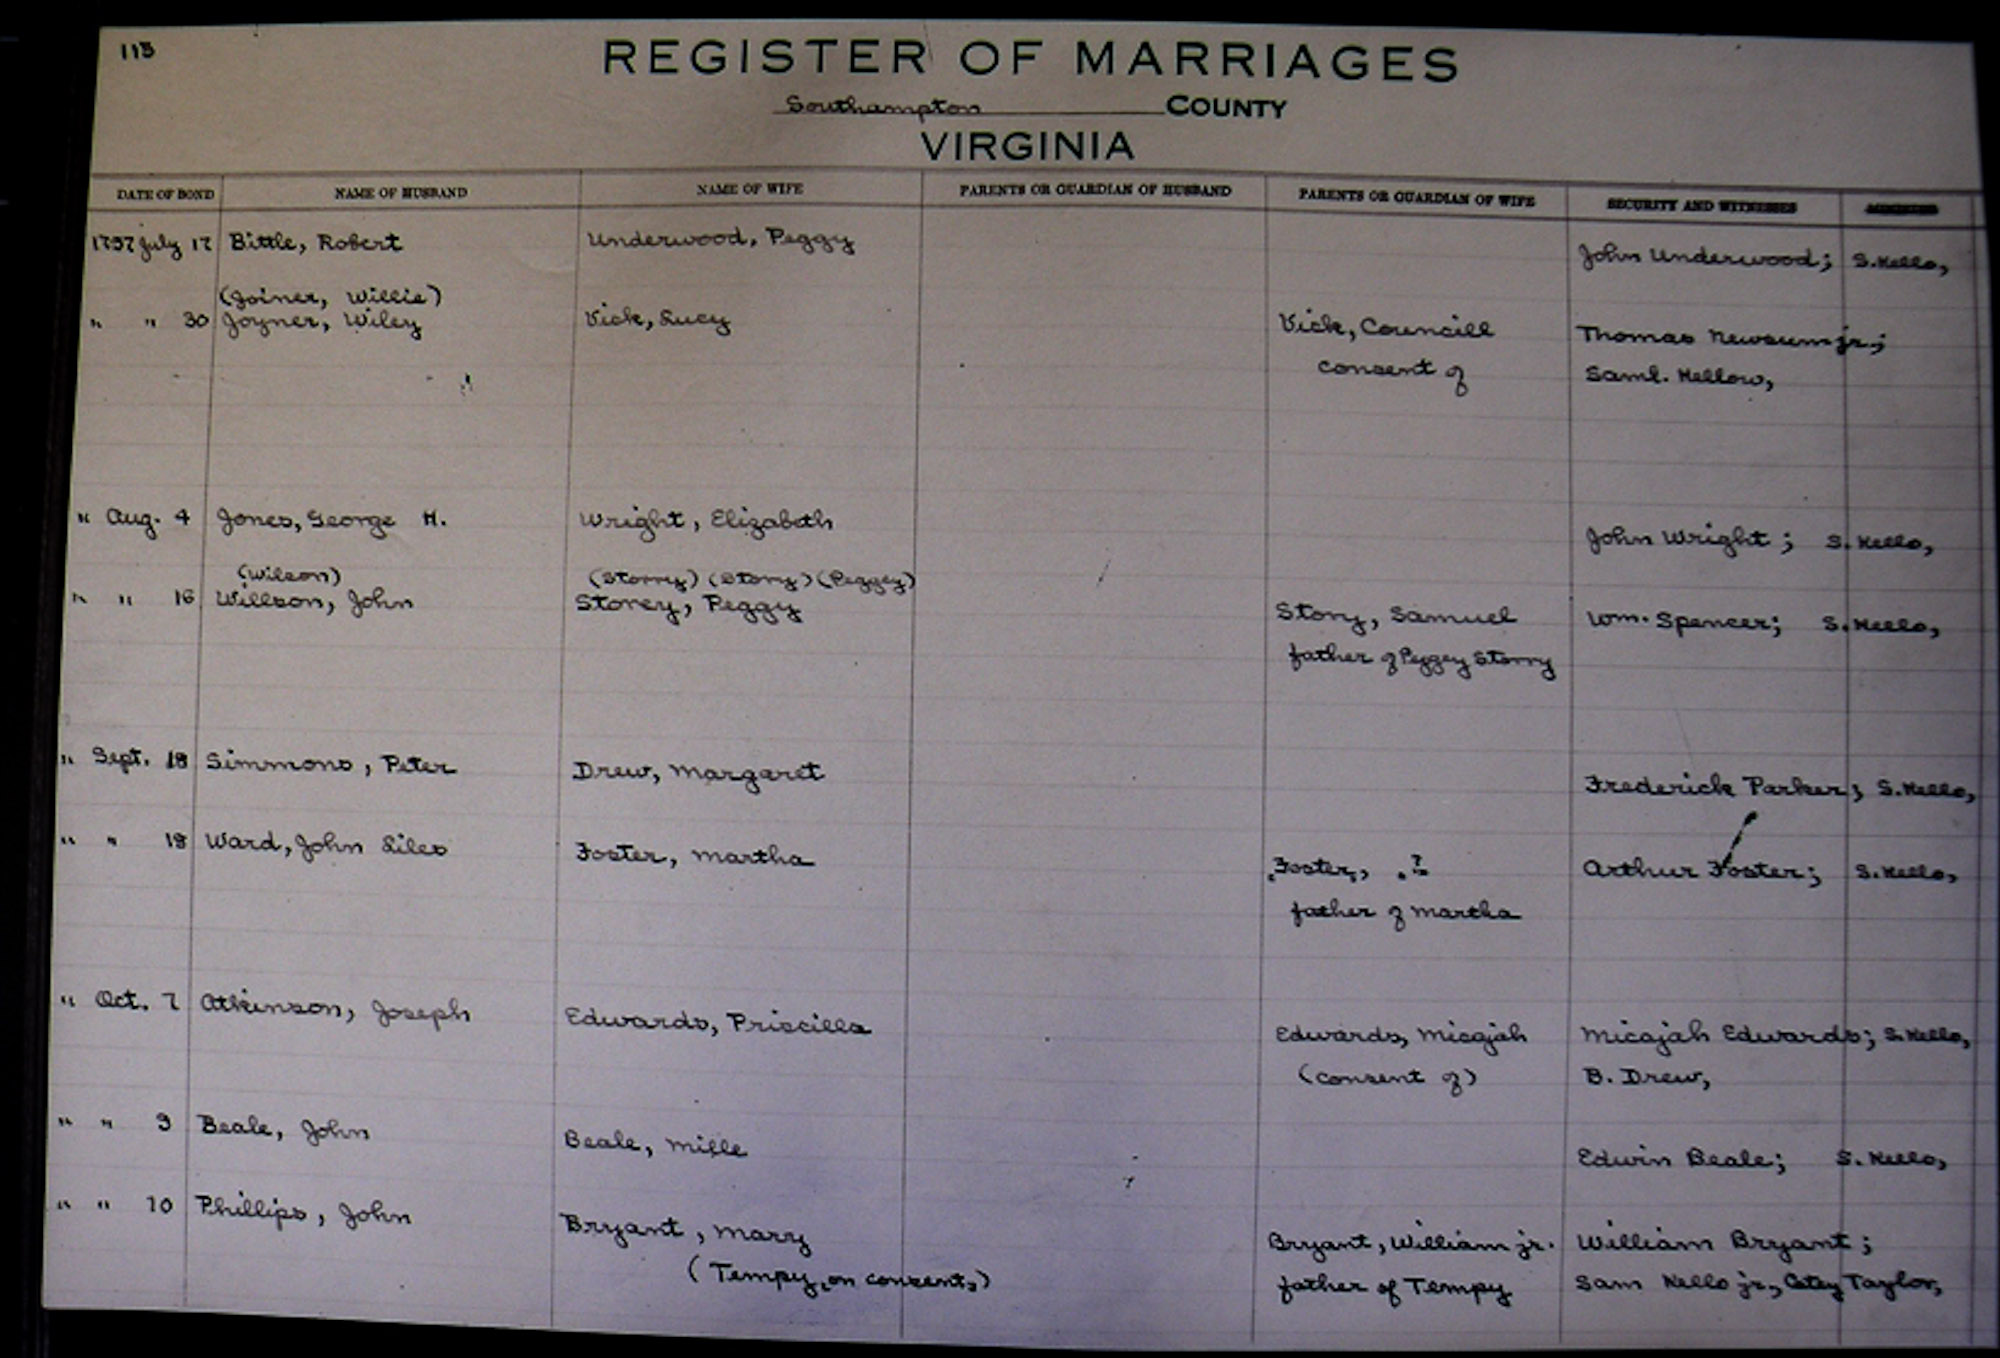 115
REGISTER OF MARRIAGES
Southampton COUNTY
VIRGINIA
DATE OF BOND NAME OF HUSBAND NAME OF WIFE PARENTS OR GUARDIAN OF HUSBAND PARENTS OR GUARDIAN OF WIFE SECURITY AND WITNESSES
1797 July 17 Bittle, Robert Underwood, Peggy John Underwood; S. Kello,
(Joiner, Willie)
" " 30 Joyner, Wiley Vick, Lucy Vick, Councill Thomas Newsum jr.;
consent of Saml. Kellow,
" Aug. 4 Jones, George H. Wright, Elizabeth John Wright; S. Kello,
(Wilson) (Storry) (Stony) (Peggey)
" " 16 Willson, John Storey, Peggy Stony, Samuel Wm. Spencer; S. Kello,
father of Peggey Storry
" Sept. 18 Simmons, Peter Drew, Margaret Frederick Parker; S. Kello,
" " 19 Ward, John Liles Foster, Martha Foster, ? Arthur Foster; S. Kello,
father of Martha
" Oct. 7 Atkinson, Joseph Edwards, Priscilla Edwards, Micajah Micajah Edwards; S. Kello,
(consent of) B. Drew,
" " 9 Beale, John Beale, Mille Edwin Beale; S. Kello,
" " 10 Phillips, John Bryant, Mary Bryant, William jr. William Bryant;
(Tempy, on consent,) father of Tempy Sam Kello jr., Taylor,